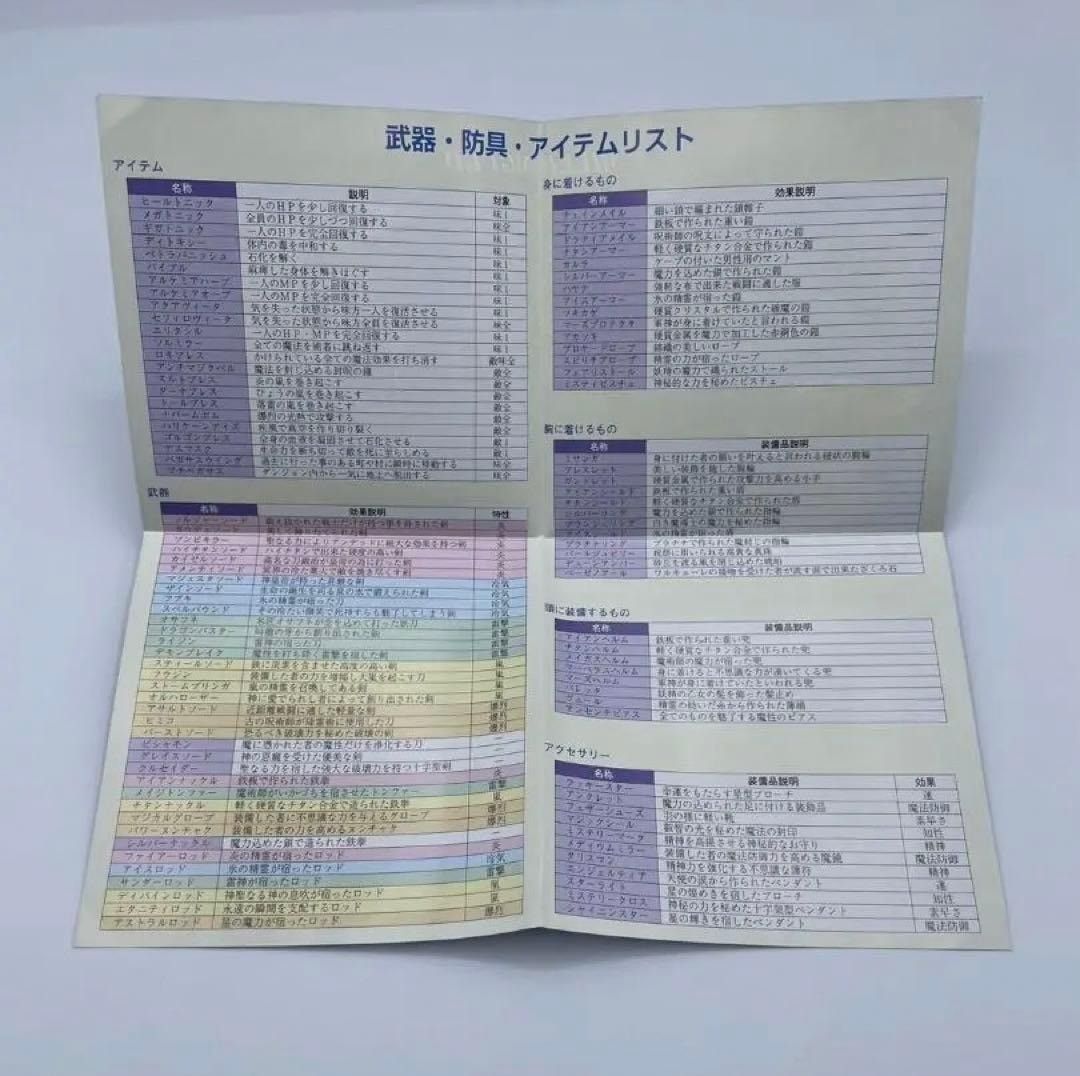 武器・防具・アイテムリスト
アイテム
名称 説明 対象
ヒールトニック 一人のＨＰを少し回復する 味1
メガトニック 全員のＨＰを少しづつ回復する 味全
ギガトニック 一人のＨＰを完全回復する 味1
ディトキシー 体内の毒を中和する 味1
ペトラバニッシュ 石化を解く 味1
バイブル 麻痺した身体を解きほぐす 味1
アルケミアハーブ 一人のＭＰを少し回復する 味1
アルケミアオーブ 一人のＭＰを完全回復する 味1
アクアヴィータ 気を失った状態から味方一人を復活させる 味1
セフィロヴィータ 気を失った状態から味方全員を復活させる 味全
エリクシル 一人のＨＰ・ＭＰを完全回復する 味1
ソルミラー 全ての魔法を術者に跳ね返す 味1
ロキブレス かけられている全ての魔法効果を打ち消す 敵味全
アンチマジクベル 魔法を封じ込める封呪の鐘 敵全
スルトブレス 炎の嵐を巻き起こす 敵全
ひょうの嵐を巻き起こす 敵全
トールブレス 落雷の嵐を巻き起こす 敵全
爆烈の光熱で攻撃する 敵全
ハリケーンアイズ 疾風で真空を作り切り裂く 敵全
ゴルゴンブレス 全身の血液を凝固させて石化させる 敵1
デスマスク 生命力を断ち切って敵を死に至らしめる 敵1
ペガサスウイング 過去に行った事のある町や村に瞬時に移動する 味全
プチペガサス ダンジョン内から一気に地上へ脱出する 味全
武器
名称 効果説明 特性
ソルジャーソード 鍛え抜かれた戦士だけが持つ事を許された剣 炎
ゾンビキラー 聖なる力によりアンデッドに絶大な効果を持つ剣 炎
ハイチタンソード ハイチタンで出来た硬度の高い剣 炎
カイゼルソード 炎
アメンティソード 炎
マジェスタソード 冷気
ザインソード 生命の誕生を司る泉の水で鍛えられた剣 冷気
フブキ 氷の精霊が宿った刀 冷気
スペルバウンド その冷たい微笑で死神すらも魅了してしまう剣 冷気
オサフネ 名匠オサフネが念を込めて打った鉄刀 雷撃
ドラゴンバスター 雷撃
ライジン 雷神の宿った刀 雷撃
デモンブレイク 魔性を打ち砕く雷撃を宿した剣 雷撃
スティールソード 鉄に炭素を含ませた高度の高い剣 風
フウジン 装備した者の力を増幅し大嵐を起こす刀 風
ストームブリンガ 嵐の精霊を召喚してある剣 風
オルハローザー 神に愛でられし者によって創り出された剣 風
アサルトソード 近距離戦闘に適した軽量な剣 爆烈
ヒミコ 古の呪術師が降霊術に使用した刀 爆烈
バーストソード 恐るべき破壊力を秘めた破壊の剣 爆烈
ビシャモン 魔に憑かれた者の魔性だけを浄化する刀 ―
グレイスソード 神の恩寵を受けた優美な剣 ―
クルセイダー 聖なる力を宿した強大な破壊力を持つ十字型剣 ―
アイアンナックル 鉄板で作られた鉄拳 炎
メイジトンファー 魔術師がいかづちを宿させたトンファー 雷撃
チタンナックル 軽く硬質なチタン合金で造られた鉄拳 風
マジカルグローブ 装備した者に不思議な力を与えるグローブ 爆烈
パワーヌンチャク 装備した者の力を高めるヌンチャク 爆烈
シルバーナックル 魔力込めた銀で造られた鉄拳 ―
ファイアーロッド 炎の精霊が宿ったロッド 炎
アイスロッド 氷の精霊が宿ったロッド 冷気
サンダーロッド 雷神が宿ったロッド 雷撃
ディバインロッド 神聖なる神の息吹が宿ったロッド 風
エタニティロッド 永遠の瞬間を支配するロッド 風
アストラルロッド 星の魔力が宿ったロッド 爆烈
身に着けるもの
名称 効果説明
チェインメイル 細い鎖で編まれた鎖帷子
アイアンアーマー 鉄板で作られた重い鎧
呪術師の呪文によって守られた鎧
チタンアーマー 軽く硬質なチタン合金で作られた鎧
カルラ ケープの付いた男性用のマント
シルバーアーマー 魔力を込めた銀で作られた鎧
ハヤテ 強靭な布で出来た戦闘に適した服
アイスアーマー 氷の精霊が宿った鎧
ツキカゲ 硬質クリスタルで作られた破魔の鎧
マーズプロテクタ 軍神が身に着けていたと言われる鎧
硬質金属を魔力で加工した赤銅色の鎧
ブロケードローブ 錦織の美しいローブ
スピリチアローブ 精霊の力が宿ったローブ
フェアリストール 妖精の魔力で織られたストール
ミスティビスチェ 神秘的な力を秘めたビスチェ
腕に着けるもの
名称 装備品説明
ミサンガ 身に付けた者の願いを叶えると言われる紐状の腕輪
ブレスレット 美しい装飾を施した腕輪
ガントレット 硬質金属で作られた攻撃力を高める小手
アイアンシールド 鉄板で作られた重い盾
チタンシールド 軽く硬質なチタン合金で作られた盾
シルバーリング 魔力を込めた銀で作られた指輪
白き魔導士の魔力を秘めた指輪
アイスシールド 氷の精霊が宿った盾
プラチナリング プラチナで作られた魔封じの指輪
パールジュビリー 祝祭に用いられる高貴な真珠
デューンアンバー 砂丘を渡る風を閉じ込めた琥珀
ベーゼノアール ワルキューレの接吻を受けた者が流す涙で出来たざくろ石
頭に装備するもの
名称 装備品説明
アイアンヘルム 鉄板で作られた重い兜
チタンヘルム 軽く硬質なチタン合金で作られた兜
メイガスヘルム 魔術師の魔力が宿った兜
身に着けると不思議な力が湧いてくる兜
マーズヘルム 軍神が身に着けていたといわれる兜
バレッタ 妖精の乙女の髪を飾った髪止め
ヴェール 精霊の紡いだ糸から作られた薄絹
アンセンテピアス 全てのものを魅了する魔性のピアス
アクセサリー
名称 装備品説明 効果
ラッキースター 幸運をもたらす星型ブローチ 運
アンクレット 魔力の込められた足に付ける装飾品 魔法防御
フェザーシューズ 羽の様に軽い靴 素早さ
マジックシール 叡智の光を秘めた魔法の封印 知性
ミステリーマーク 精神を高揚させる神秘的なお守り 精神
メディウムミラー 装備した者の魔法防御力を高める魔鏡 魔法防御
タリスマン 精神力を強化する不思議な護符 精神
エンジェルティア 天使の涙から作られたペンダント 運
スターライト 星の煌めきを宿したブローチ 知性
ミステリークロス 神秘の力を秘めた十字架型ペンダント 素早さ
シャイニンスター 星の輝きを宿したペンダント 魔法防御